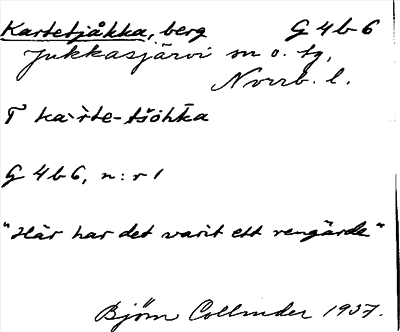 Kartetjåkka, berg G 4 b 6
Jukkasjärvi sn o. tg,
Norrb. l.
T ka·`rte-tšŏhka
G 4 b 6, n:r 1
"Här har det varit ett rengärde"
Björn Collinder 1937.